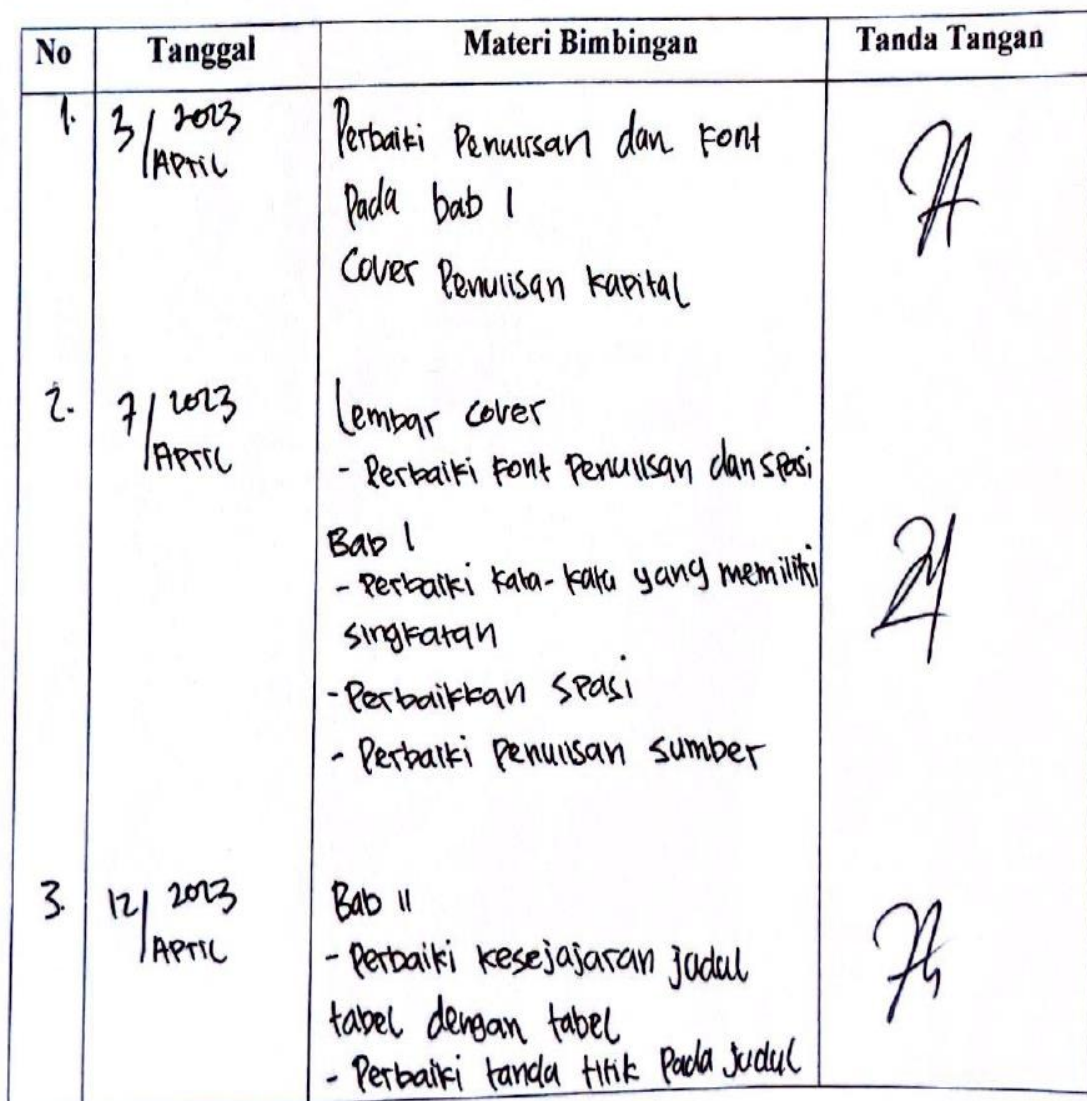 No Tanggal Materi Bimbingan Tanda Tangan
1. 3/2023 Perbaiki Penulisan dan Font
April Pada bab 1
Cover Penulisan kapital
2. 7/2023 Lembar cover
April - Perbaiki Font Penulisan dan spasi
Bab 1
- Perbaiki kata-kata yang memiliki
singkatan
- Perbaikkan spasi
- Perbaiki Penulisan sumber
3. 12/2023 Bab II
April - Perbaiki kesejajaran judul
tabel dengan tabel
- Perbaiki tanda titik Pada Judul